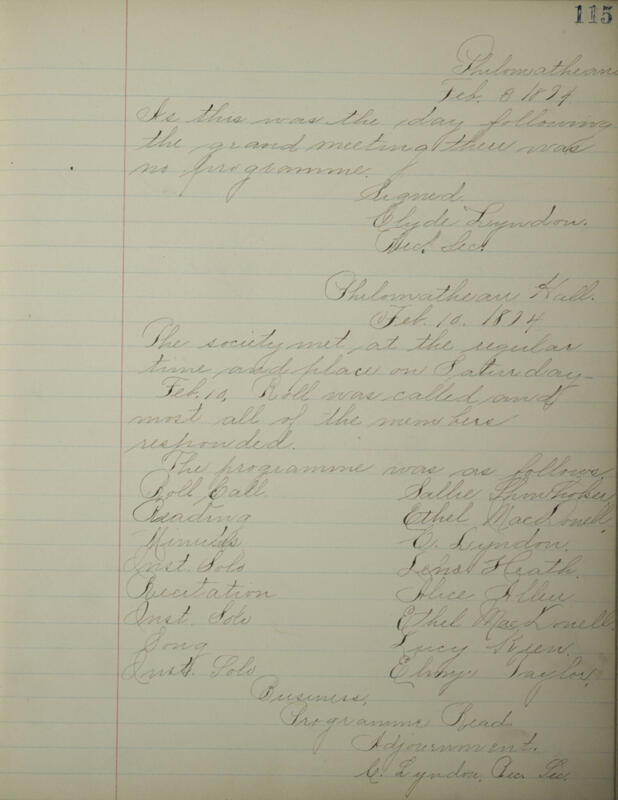 115
Philomathean
Feb. 8 1894
As this was the day following
the grand meeting there was
no programme.
Signed
Clyde Lyndon.
Rec. Sec.
Philomathean Hall.
Feb. 10. 1894
The society met at the regular
time and place on Saturday
Feb. 10, Roll was called and
most all of the members
responded.
The programme was as follows,
Roll Call Sallie
Reading Ethel MacDonell,
Minutes C. Lyndon.
Inst. Solo Lena Heath.
Recitation Alice Allen
Inst. Solo Ethel MacDonell.
Song Lucy Keen.
Inst. Solo Taylor.
Business,
Programme Read
Adjournment.
C. Lyndon, Rec. Sec.